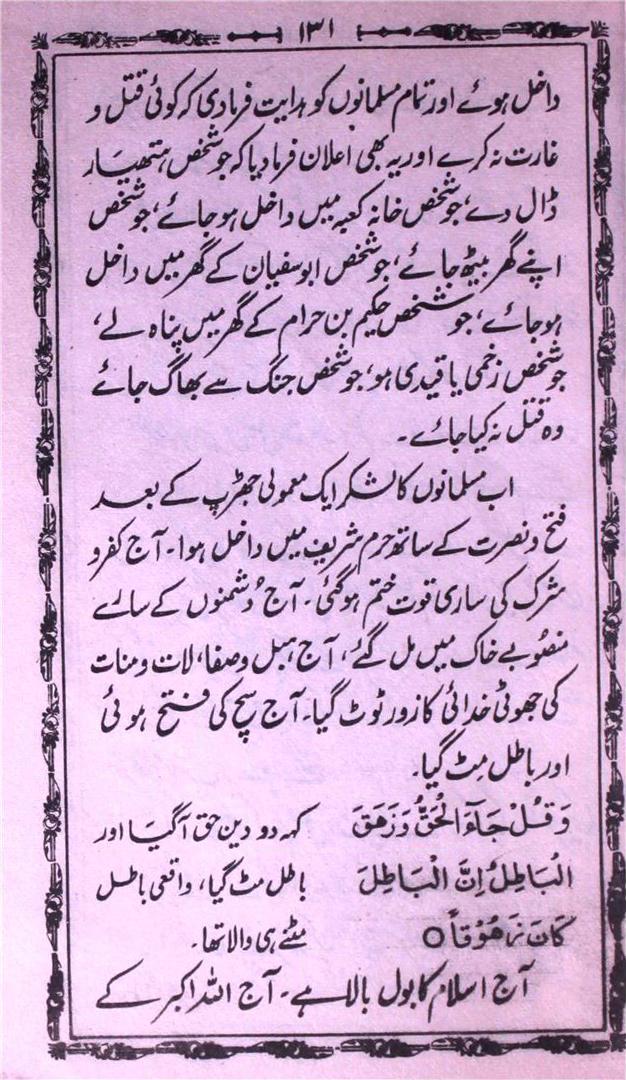 ۱۳۱
داخل ہوئے اور تمام مسلمانوں کو ہدایت فرمادی کہ کوئی قتل و
غارت نہ کرے اور یہ بھی اعلان فرمادیا کہ جو شخص ہتھیار
ڈال دے، جو شخص خانہ کعبہ میں داخل ہوجائے، جو شخص
اپنے گھر بیٹھ جائے، جو شخص ابو سفیان کے گھر میں داخل
ہوجائے، جو شخص حکیم بن حرام کے گھر میں پناہ لے،
جو شخص زخمی یا قیدی ہو، جو شخص جنگ سے بھاگ جائے
وہ قتل نہ کیا جائے۔
اب مسلمانوں کا لشکر ایک معمولی جھڑپ کے بعد
فتح و نصرت کے ساتھ حرم شریف میں داخل ہوا۔ آج کفر و
شرک کی ساری قوت ختم ہوگئی۔ آج دُشمنوں کے سارے
منصُوبے خاک میں مل گئے، آج ہبل و صفا، لات و منات
کی جھوٹی خدائی کا زور ٹوٹ گیا۔ آج سچ کی فتح ہوئی
اور باطل مِٹ گیا۔
وَقُلْ جَآءَ الْحَقُّ وَزَهَقَ کہہ دو دین حق آگیا اور
الْبَاطِلُ اِنَّ الْبَاطِلَ باطل مٹ گیا، واقعی باطل
كَانَ زَهُوْقاً ○ مٹنے ہی والا تھا۔
آج اسلام کا بول بالا ہے۔ آج اللہ اکبر کے